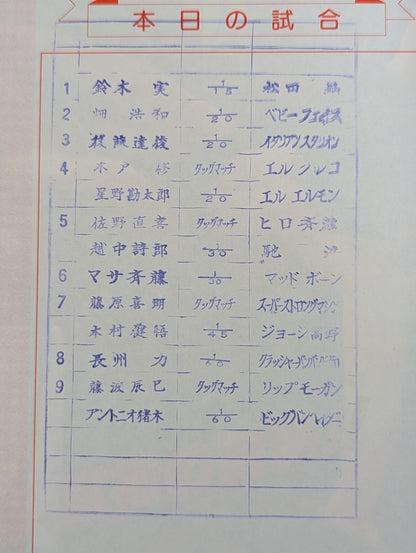 本日の試合
1 鈴木 実 1/15 松田 納
2 畑 浩和 1/20 ベビーフェイス
3 後藤達俊 1/20 イタリアンスタリオン
4 木戸 修 タッグマッチ エル グレコ
星野勘太郎 1/20 エル エルモン
5 佐野直喜 タッグマッチ ヒロ斉藤
越中詩郎 1/30 馳 浩
6 マサ斉藤 1/30 マッド ボーン
7 藤原喜明 タッグマッチ スーパーストロングマシン
木村健悟 1/45 ジョージ高野
8 長州 力
9 藤波辰巳 タッグマッチ リップモーガン
アントニオ猪木 1/60 ビッグバン